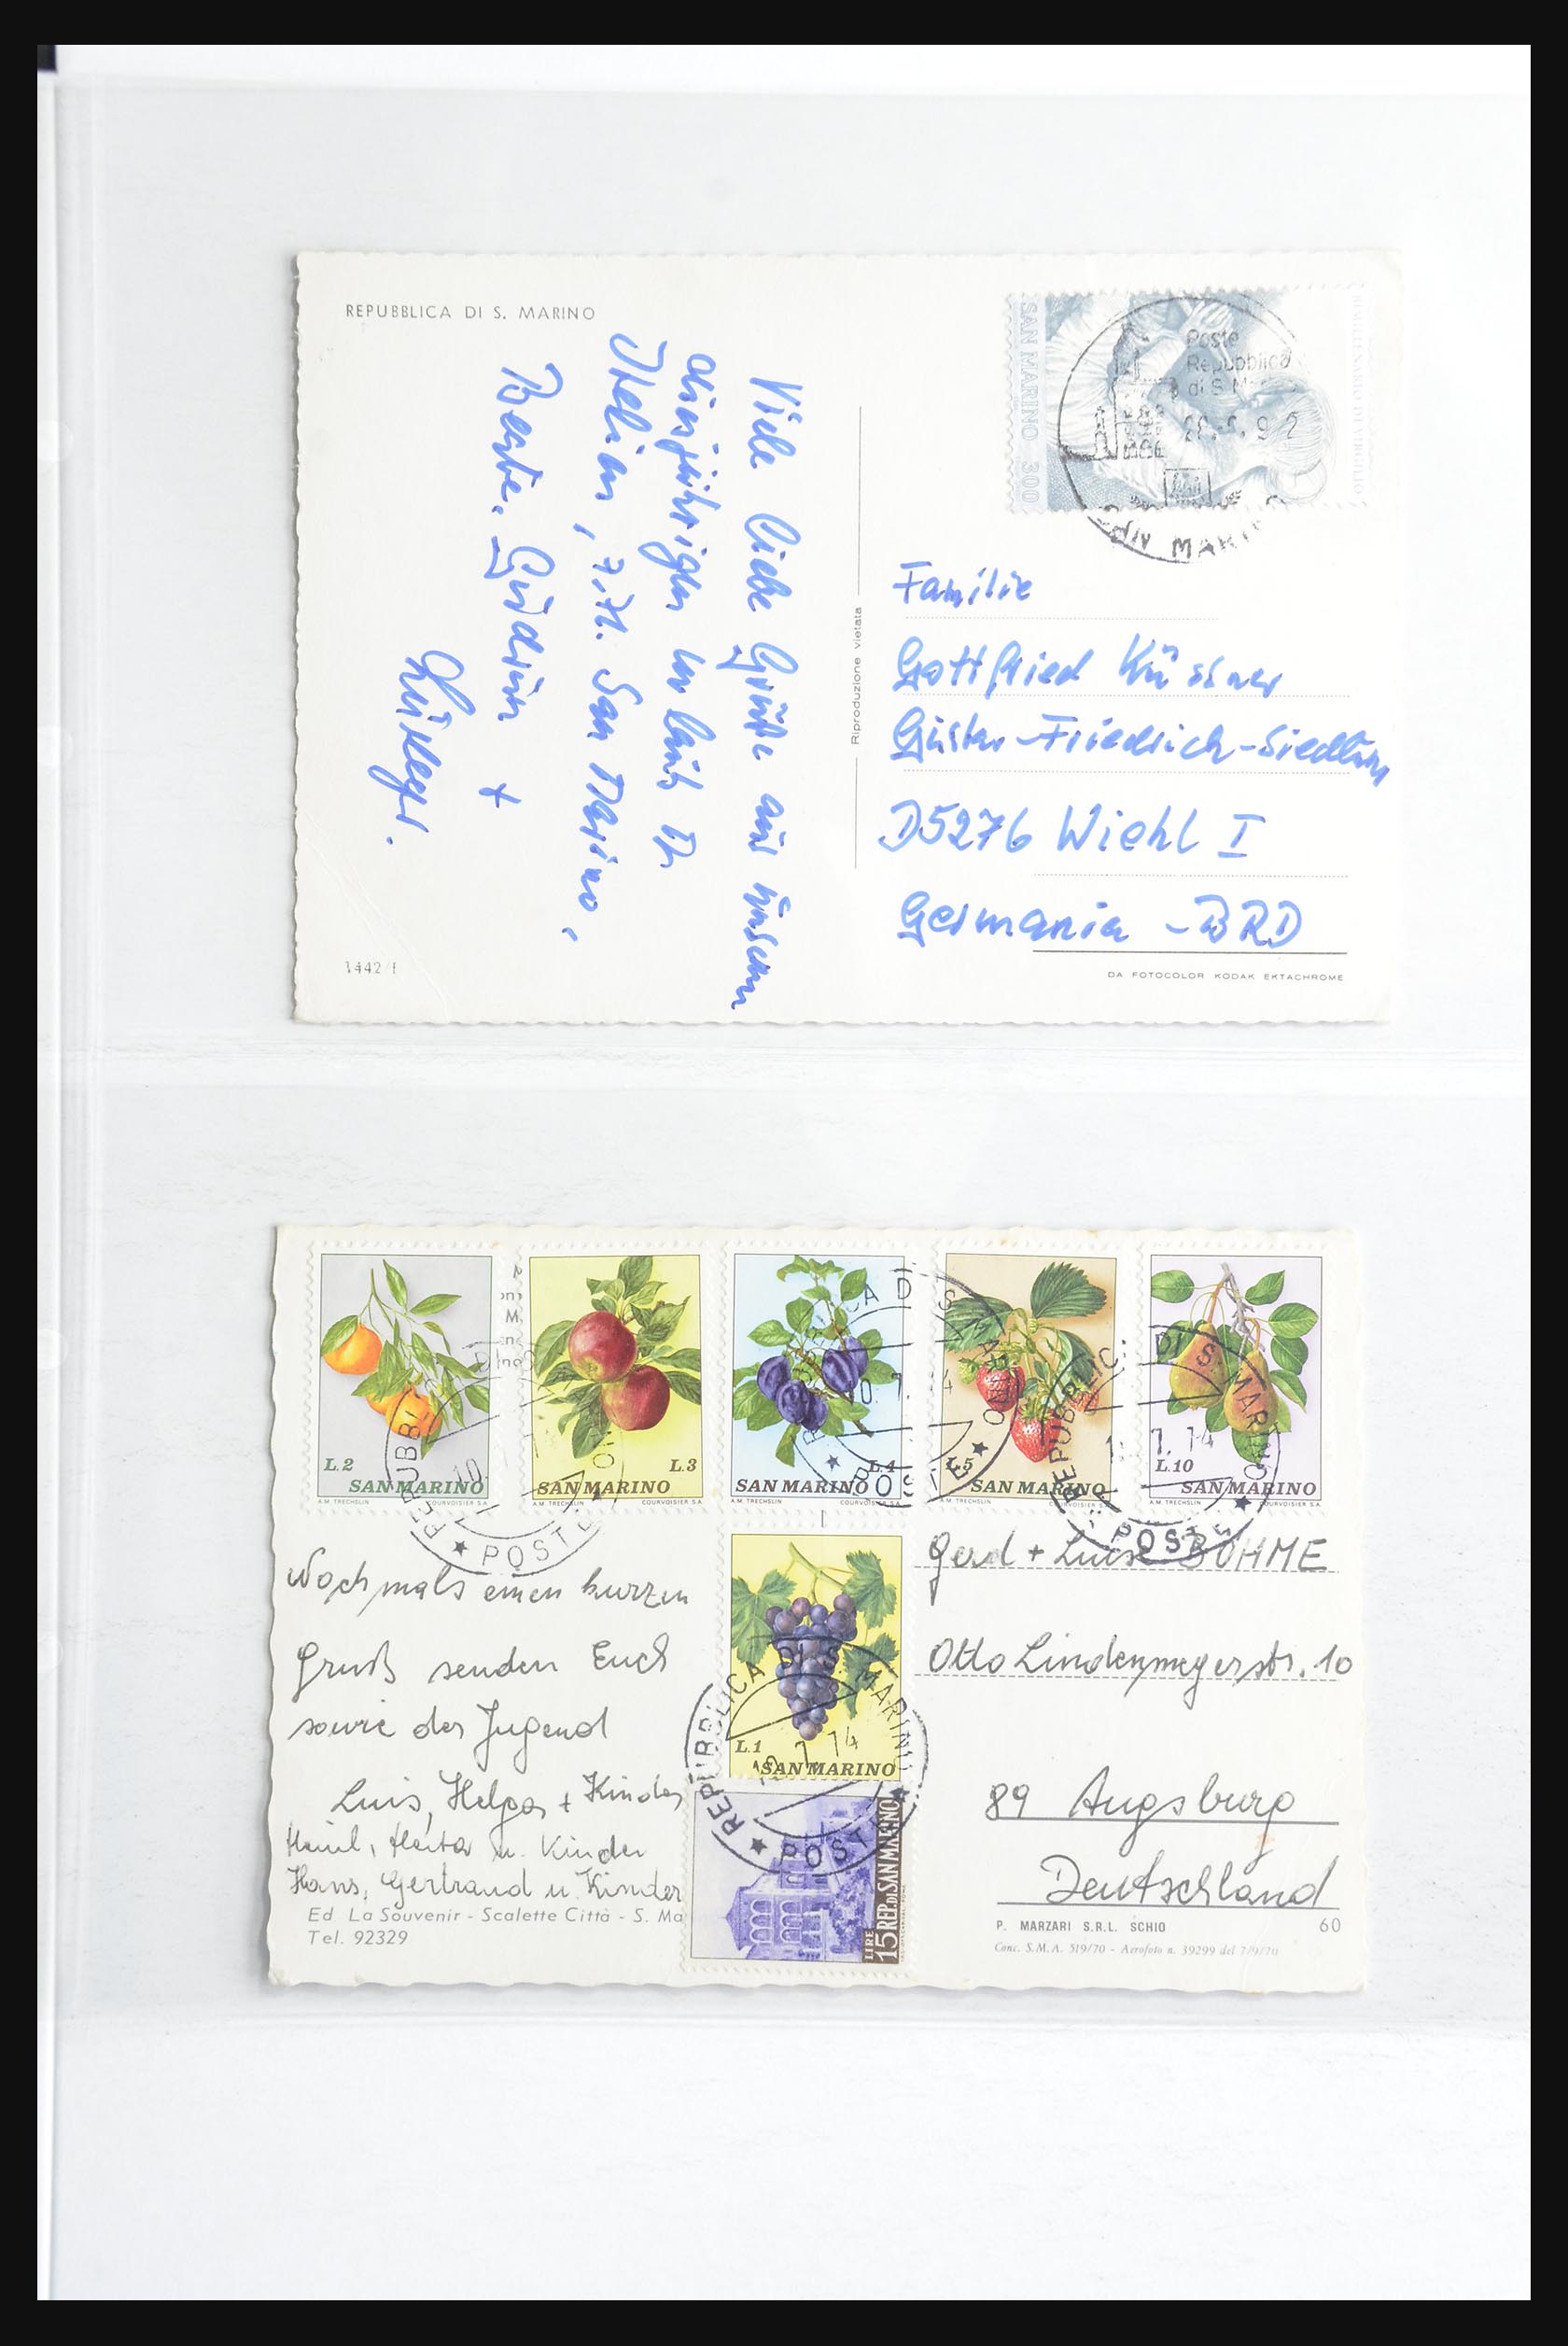 REPUBBLICA DI S. MARINO
Viele liebe Grüße aus unserm
diesjährigen Urlaub in
Italien, z.Zt. San Marino,
Gudrun +
SAN MARINO 300
BIMILLENARIO DI VIRGILIO
Poste
Repubblica
di S. Mar
Familie
Gottfried
D5276 Wiehl I
Germania - BRD
Riproduzione vietata
1442/
DA FOTOCOLOR KODAK EKTACHROME
L.2
SAN MARINO
A.M. TRECHSLIN COURVOISIER S.A.
L.3
SAN MARINO
A.M. TRECHSLIN COURVOISIER S.A.
L.4
SAN MARINO
A.M. TRECHSLIN COURVOISIER S.A.
L.5
SAN MARINO
A.M. TRECHSLIN COURVOISIER S.A.
L.10
SAN MARINO
A.M. TRECHSLIN COURVOISIER S.A.
REPUBBLICA DI S. MARINO
★ POSTE ★
L.1
SAN MARINO
LIRE 15 REP. DI SAN MARINO
Nochmals einen kurzen
Gruß senden Euch
sowie der Jugend
Luis, Helga + Kinder
u. Kinder
Hans, Gertraud u. Kinder
Ed. La Souvenir - Scalette Città - S. Ma
Tel. 92329
Gerd + Luise BÖHME
Otto Lindenmeyerstr. 10
89 Augsburg
Deutschland
P. MARZARI S.R.L. SCHIO 60
Conc. S.M.A. 519/70 - Aerofoto n. 39299 del 7/9/70